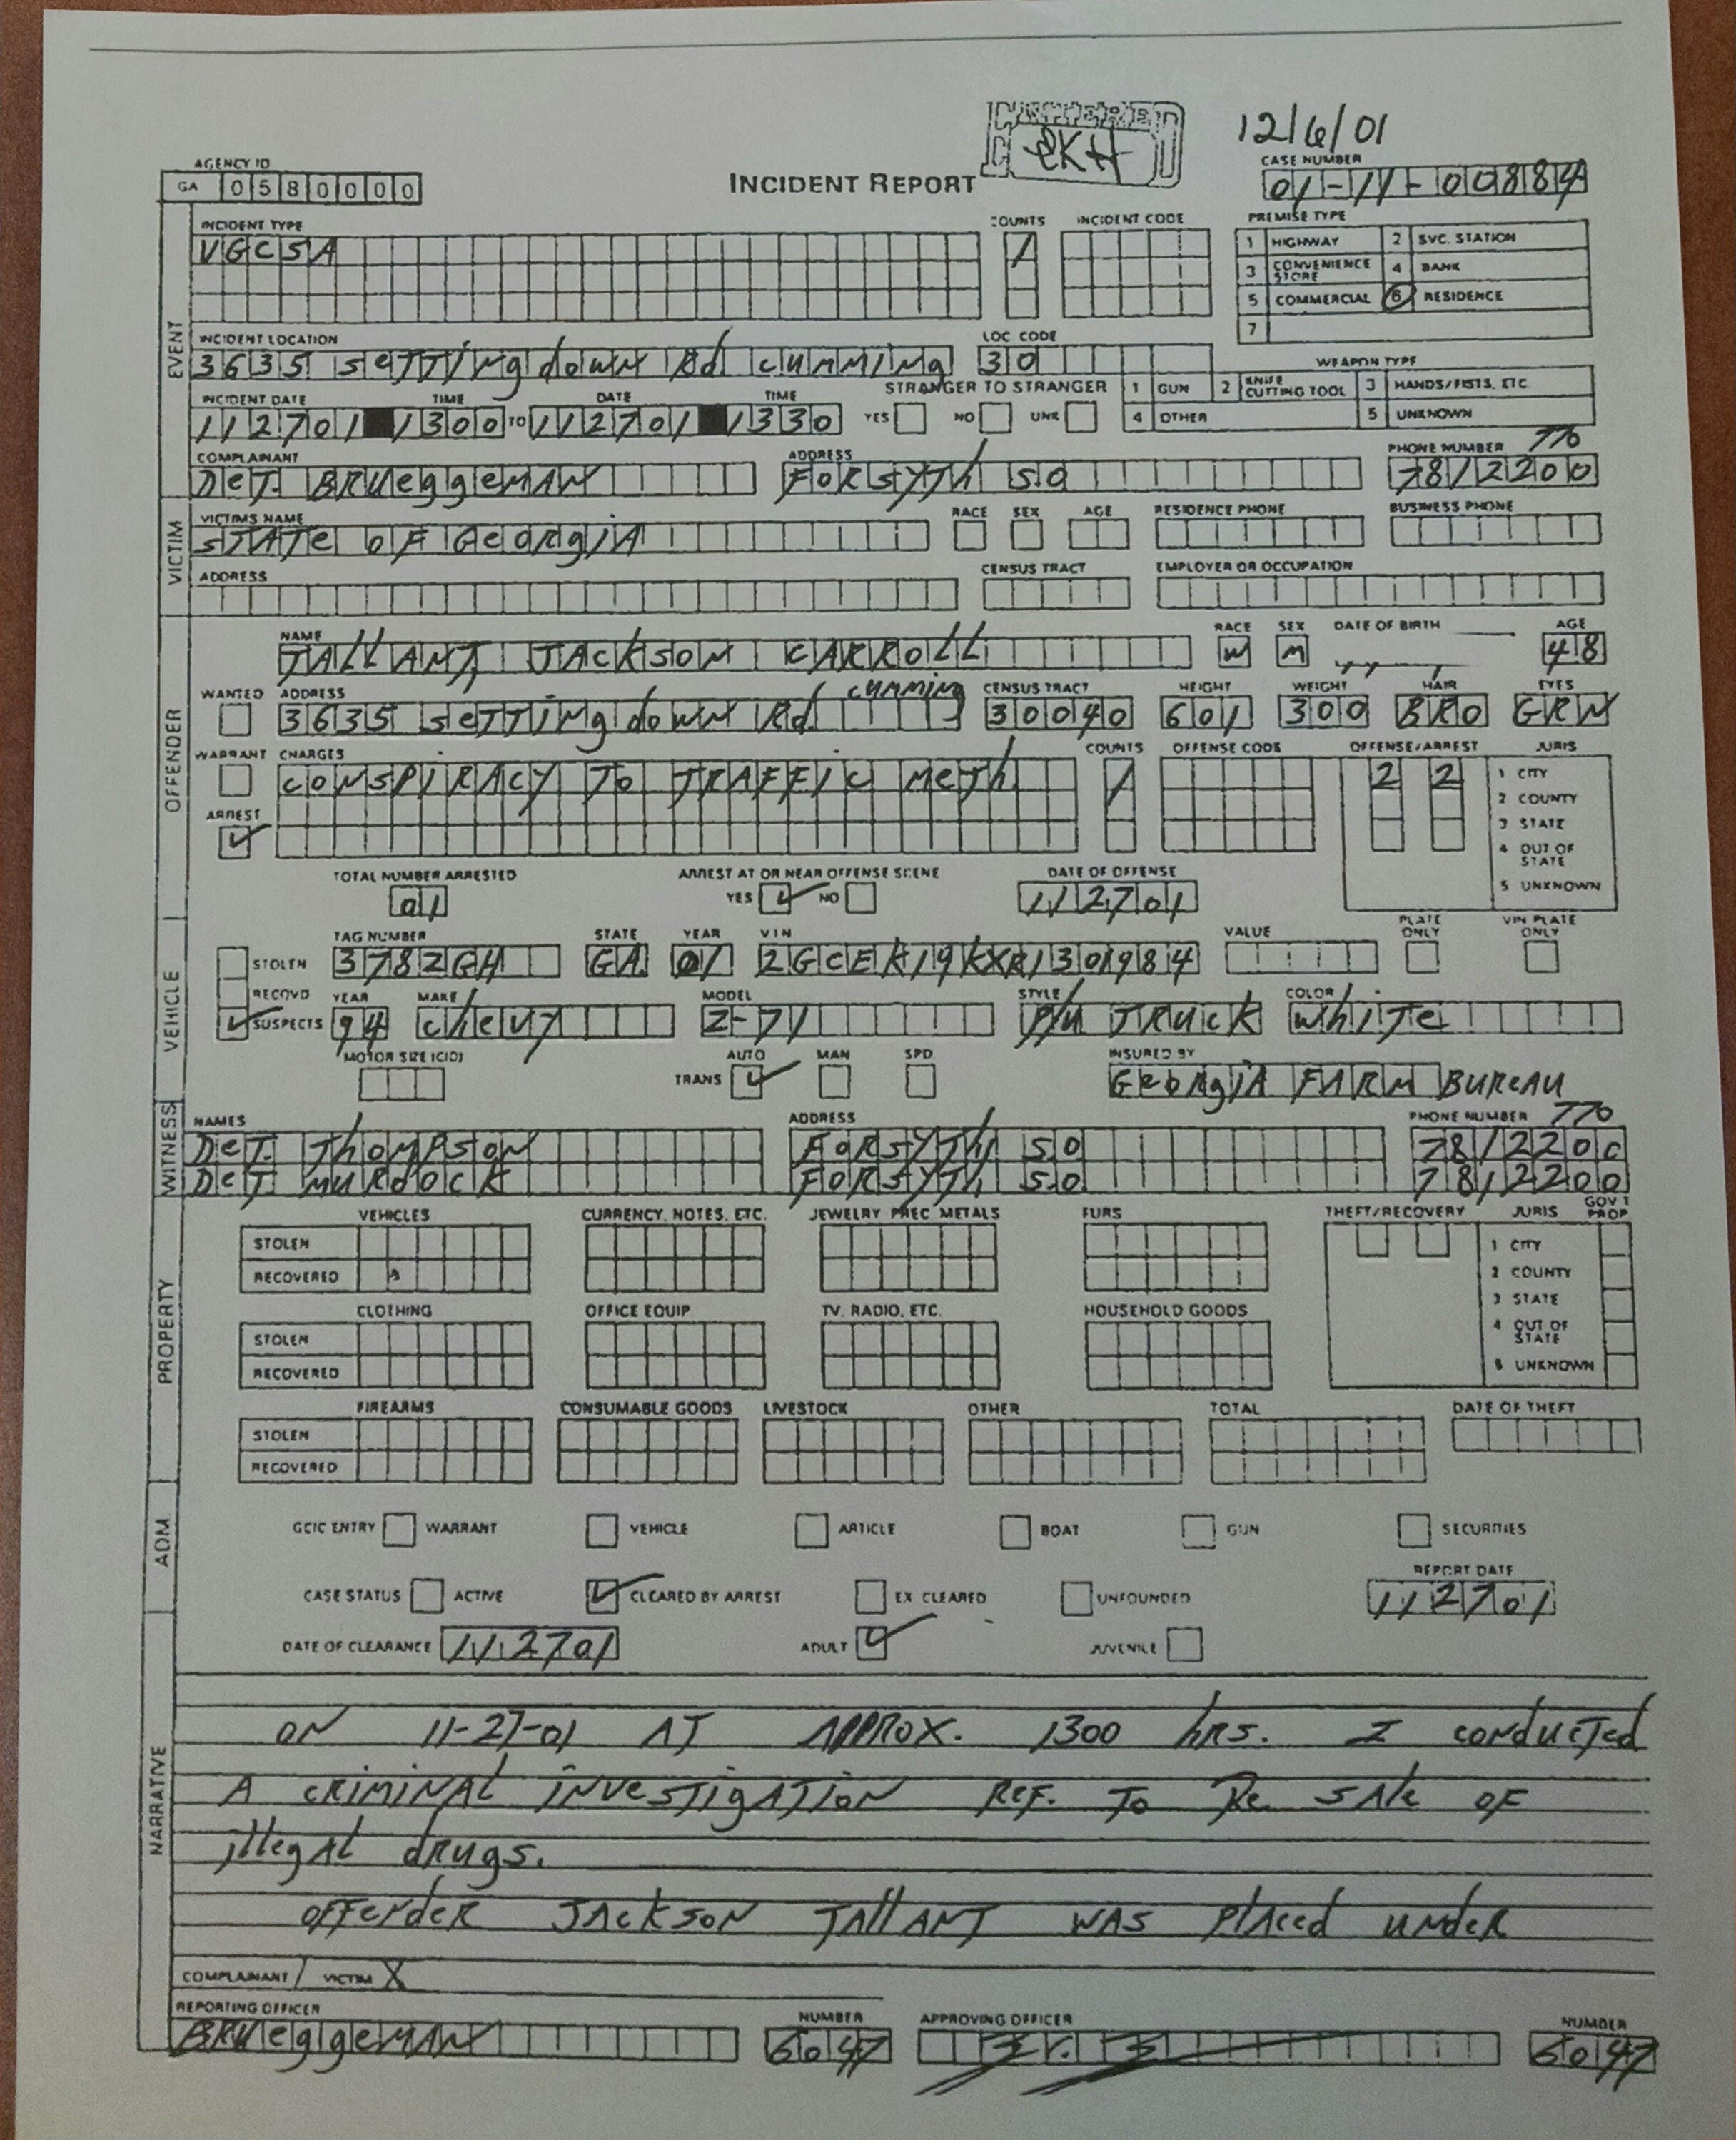 ENTERED
EKH
12/6/01
AGENCY ID
GA 0580000
INCIDENT REPORT
CASE NUMBER
01-11-00884
INCIDENT TYPE
VGCSA
COUNTS
1
INCIDENT CODE
PREMISE TYPE
1 HIGHWAY 2 SVC. STATION
3 CONVENIENCE STORE 4 BANK
5 COMMERCIAL 6 RESIDENCE
7
EVENT
INCIDENT LOCATION
3635 Settingdown Rd Cumming
LOC CODE
30
WEAPON TYPE
1 GUN 2 KNIFE CUTTING TOOL 3 HANDS/FISTS, ETC.
4 OTHER 5 UNKNOWN
INCIDENT DATE TIME DATE TIME
112701 1300 TO 112701 1330
STRANGER TO STRANGER
YES NO UNK
COMPLAINANT
Det. Brueggeman
ADDRESS
Forsyth S.O
PHONE NUMBER 770
7812200
VICTIM
VICTIMS NAME
State of Georgia
RACE SEX AGE RESIDENCE PHONE BUSINESS PHONE
ADDRESS CENSUS TRACT EMPLOYER OR OCCUPATION
OFFENDER
NAME
Tallant, Jackson Carroll
RACE SEX DATE OF BIRTH AGE
W M 48
WANTED ADDRESS
3635 Settingdown Rd. Cumming
CENSUS TRACT HEIGHT WEIGHT HAIR EYES
30040 601 300 BRO GRN
WARRANT CHARGES
Conspiracy to Traffic Meth
COUNTS
1
OFFENSE CODE
OFFENSE/ARREST
2 2
JURIS
1 CITY
2 COUNTY
3 STATE
4 OUT OF STATE
5 UNKNOWN
ARREST
TOTAL NUMBER ARRESTED
01
ARREST AT OR NEAR OFFENSE SCENE
YES NO
DATE OF OFFENSE
112701
VEHICLE
STOLEN
RECOVD
SUSPECTS
TAG NUMBER STATE YEAR VIN VALUE PLATE ONLY VIN PLATE ONLY
3782GH GA 01
YEAR MAKE MODEL STYLE COLOR
94 Chevy Z-71 P/U Truck White
MOTOR SIZE (CID)
TRANS AUTO MAN SPD
INSURED BY
Georgia Farm Bureau
WITNESS
NAMES ADDRESS PHONE NUMBER 770
Det. Thompson Forsyth S.O 7812200
Det. Murdock Forsyth S.O 7812200
PROPERTY
VEHICLES CURRENCY, NOTES, ETC. JEWELRY PREC METALS FURS THEFT/RECOVERY JURIS GOV'T PROP
STOLEN
RECOVERED
1 CITY
2 COUNTY
3 STATE
4 OUT OF STATE
5 UNKNOWN
CLOTHING OFFICE EQUIP TV. RADIO, ETC. HOUSEHOLD GOODS
STOLEN
RECOVERED
FIREARMS CONSUMABLE GOODS LIVESTOCK OTHER TOTAL DATE OF THEFT
STOLEN
RECOVERED
ADM
GCIC ENTRY WARRANT VEHICLE ARTICLE BOAT GUN SECURITIES
CASE STATUS ACTIVE CLEARED BY ARREST EX CLEARED UNFOUNDED
REPORT DATE
112701
DATE OF CLEARANCE 112701 ADULT JUVENILE
NARRATIVE
On 11-27-01 at approx. 1300 hrs. I conducted
a criminal investigation ref. to the sale of
illegal drugs.
Offender Jackson Tallant was placed under
COMPLAINANT / VICTIM X
REPORTING OFFICER NUMBER APPROVING OFFICER NUMBER
Brueggeman 6047 6047